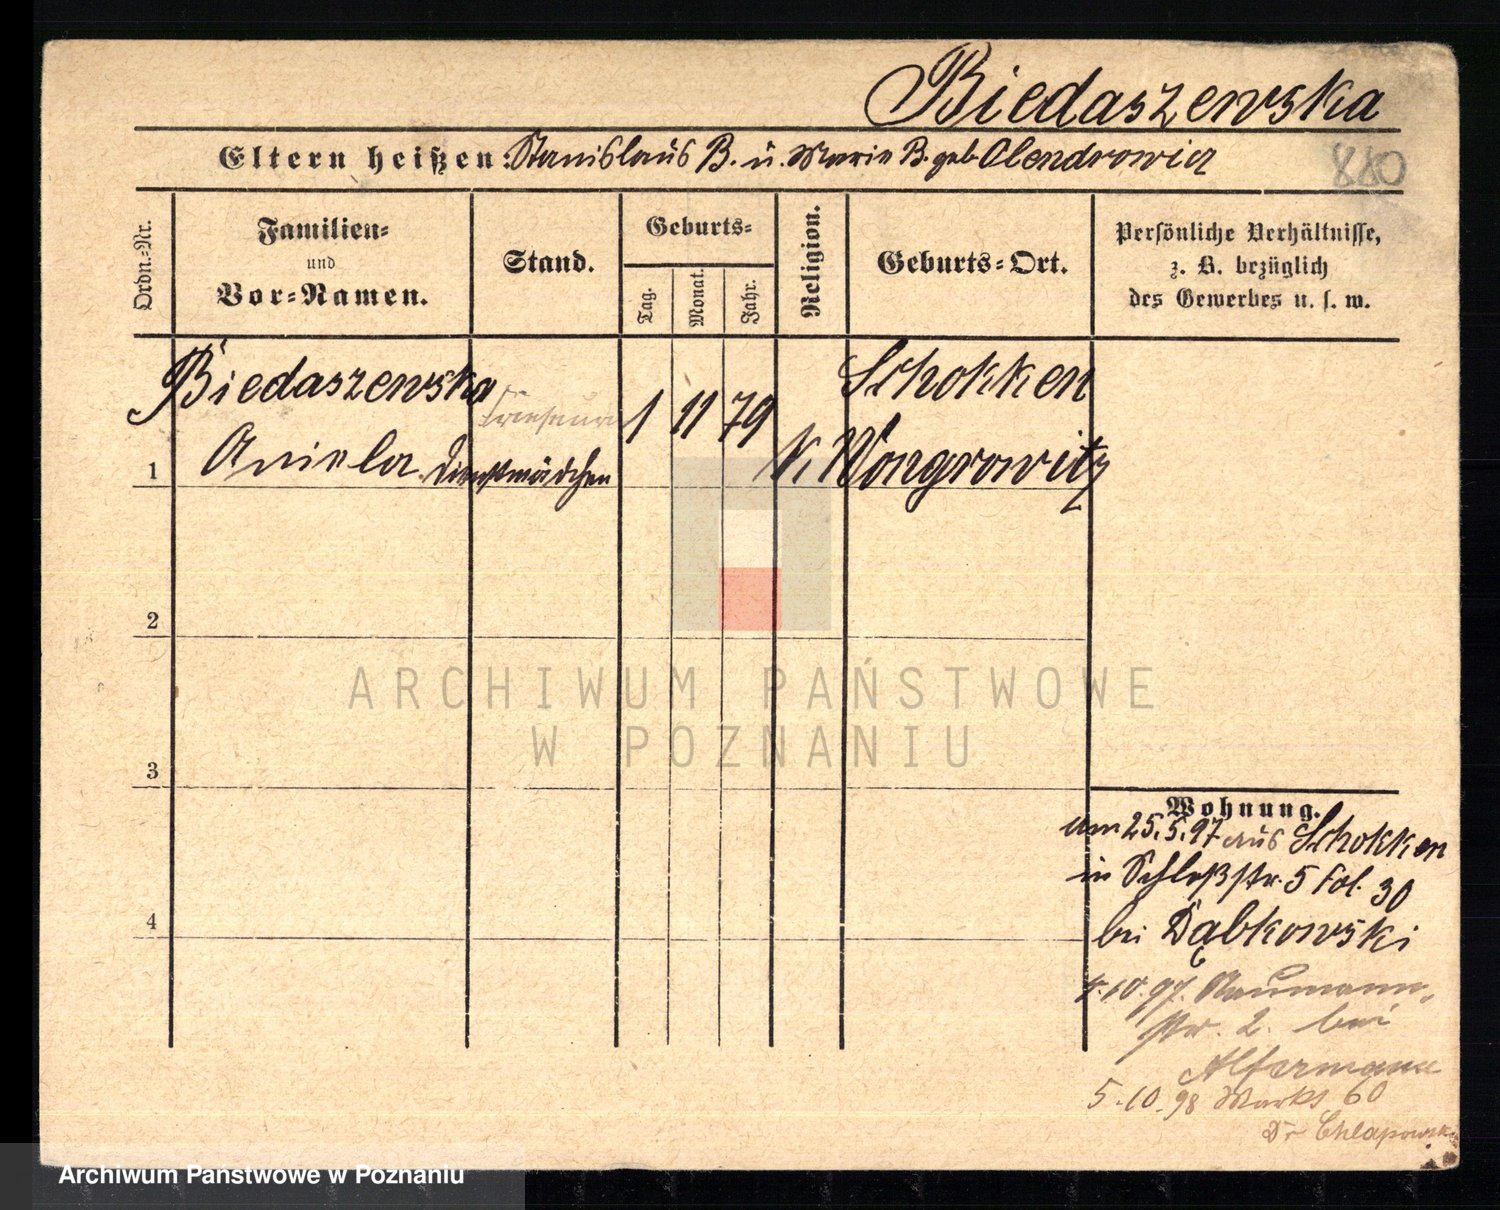 Biedaszewska
Eltern heißen: Stanislaus B. u. Marie B. geb. Olendrowicz
880
Ordn.-Nr.
Familien-
und
Vor-Namen.
Stand.
Geburts-
Tag.
Monat.
Jahr.
Religion.
Geburts-Ort.
Persönliche Verhältnisse,
z. B. bezüglich
des Gewerbes u. s. w.
1
Biedaszewska
Aniela
Dienstmädchen
1 11 79
Schokken
K. Wongrowitz
2
3
4
Wohnung.
am 25.5.97 aus Schokken
in Schloßstr. 5 Fol. 30
bei Dąbkowski
4.10.97. Naumann-
str. 2. bei
5.10.98 Markt 60
Dr Chlapowski
ARCHIWUM PAŃSTWOWE
W POZNANIU
Archiwum Państwowe w Poznaniu